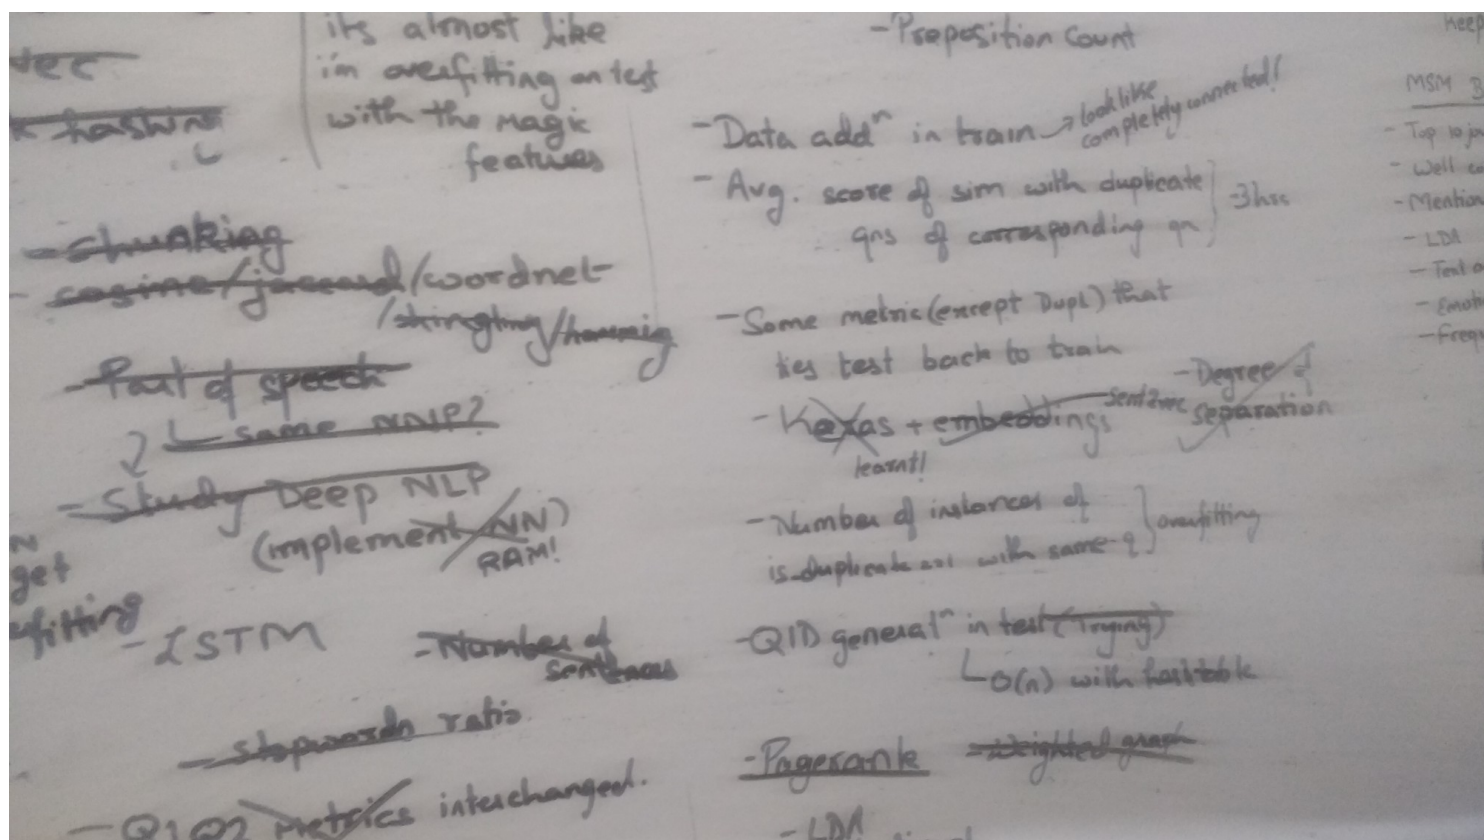 its almost like
im overfitting on test
with the magic
features
hashing
- chunking
- cosine/jaccard/wordnet
/shingling/hamming
- Part of speech
same NNP?
- Study Deep NLP
(implement NN)
RAM!
get
- LSTM
- Number of
sentences
- stopwords ratio
- Q1Q2 metrics interchanged.
- Preposition count
- Data addn in train → look like
completely connected!
- Avg. score of sim with duplicate
qns of corresponding qn
3hrs
- Some metric (except Dupl) that
ties test back to train
- Kexas + embeddings sent2vec
learnt!
- Degree of
separation
- Number of instances of
is_duplicate == 1 with same q
overfitting
- QID generaln in test (Trying)
O(n) with hashtable
- Pagerank
- Weighted graph
- LDA
keep
MSM
- Top 10
- Well
- Mention
- LDA
- Text
- Emoti
- Freq